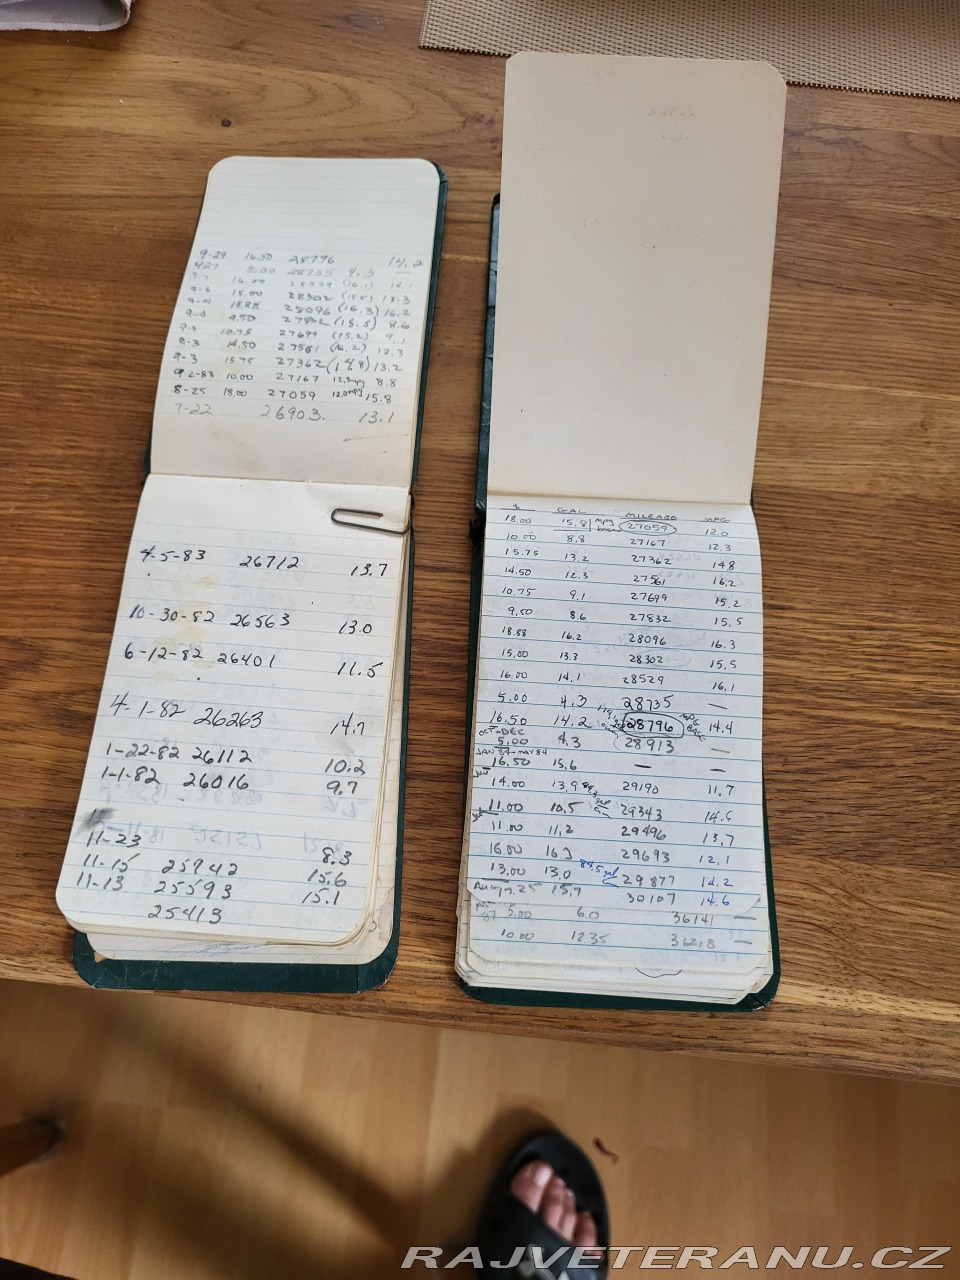 9-29 16.50 28776 14.2
5.00 28735 4.3 —
16.00 28529 (16.1) 14.1
15.00 28302 (15.5) 13.3
18.88 28096 (16.3) 16.2
9-4 9.50 27832 (15.5) 8.6
10.75 27699 (15.2) 9.1
9-3 14.50 27561 (16.2) 12.3
9-3 15.75 27362 (14.8) 13.2
9-2-83 10.00 27167 12.3mpg 8.8
8-25 18.00 27059 12.0mpg 15.8
7-22 26903. 13.1
4-5-83 26712 13.7
10-30-82 26563 13.0
6-12-82 26401 11.5
4-1-82 26263 14.7
1-22-82 26112 10.2
1-1-82 26016 9.7
11-23 8.3
11-15 25742 15.6
11-13 25593 15.1
25413
$ GAL MILEAGE MPG
18.00 15.8 mpg 27059 12.0
10.00 8.8 27167 12.3
15.75 13.2 27362 14.8
14.50 12.3 27561 16.2
10.75 9.1 27699 15.2
9.50 8.6 27832 15.5
18.88 16.2 28096 16.3
15.00 13.3 28302 15.5
16.00 14.1 28529 16.1
5.00 4.3 28735 —
16.50 14.2 28796 14.4
OCT-DEC
5.00 4.3 28913 —
JAN 84-MAY 84
16.50 15.6 — —
14.00 13.9 29190 11.7
11.00 10.5 29343 14.6
11.00 11.2 29496 13.7
16.00 16.3 29693 12.1
13.00 13.0 29877 14.2
Aug 17.25 15.7 30107 14.6
87 5.00 6.0 36141 —
10.00 12.35 36218 —
RAJVETERANU.CZ